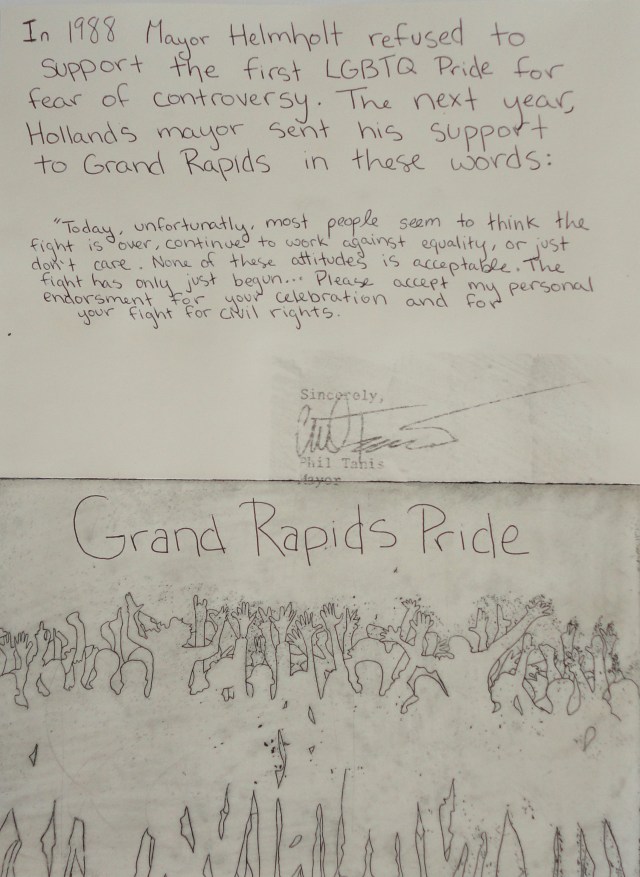 In 1988 Mayor Helmholt refused to
support the first LGBTQ Pride for
fear of controversy. The next year,
Hollands mayor sent his support
to Grand Rapids in these words:
"Today, unfortunatly, most people seem to think the
fight is over, continue to work against equality, or just
don't care. None of these attitudes is acceptable. The
fight has only just begun... Please accept my personal
endorsment for your celebration and for
your fight for civil rights.
Sincerely,
Phil Tanis
Mayor
Grand Rapids Pride